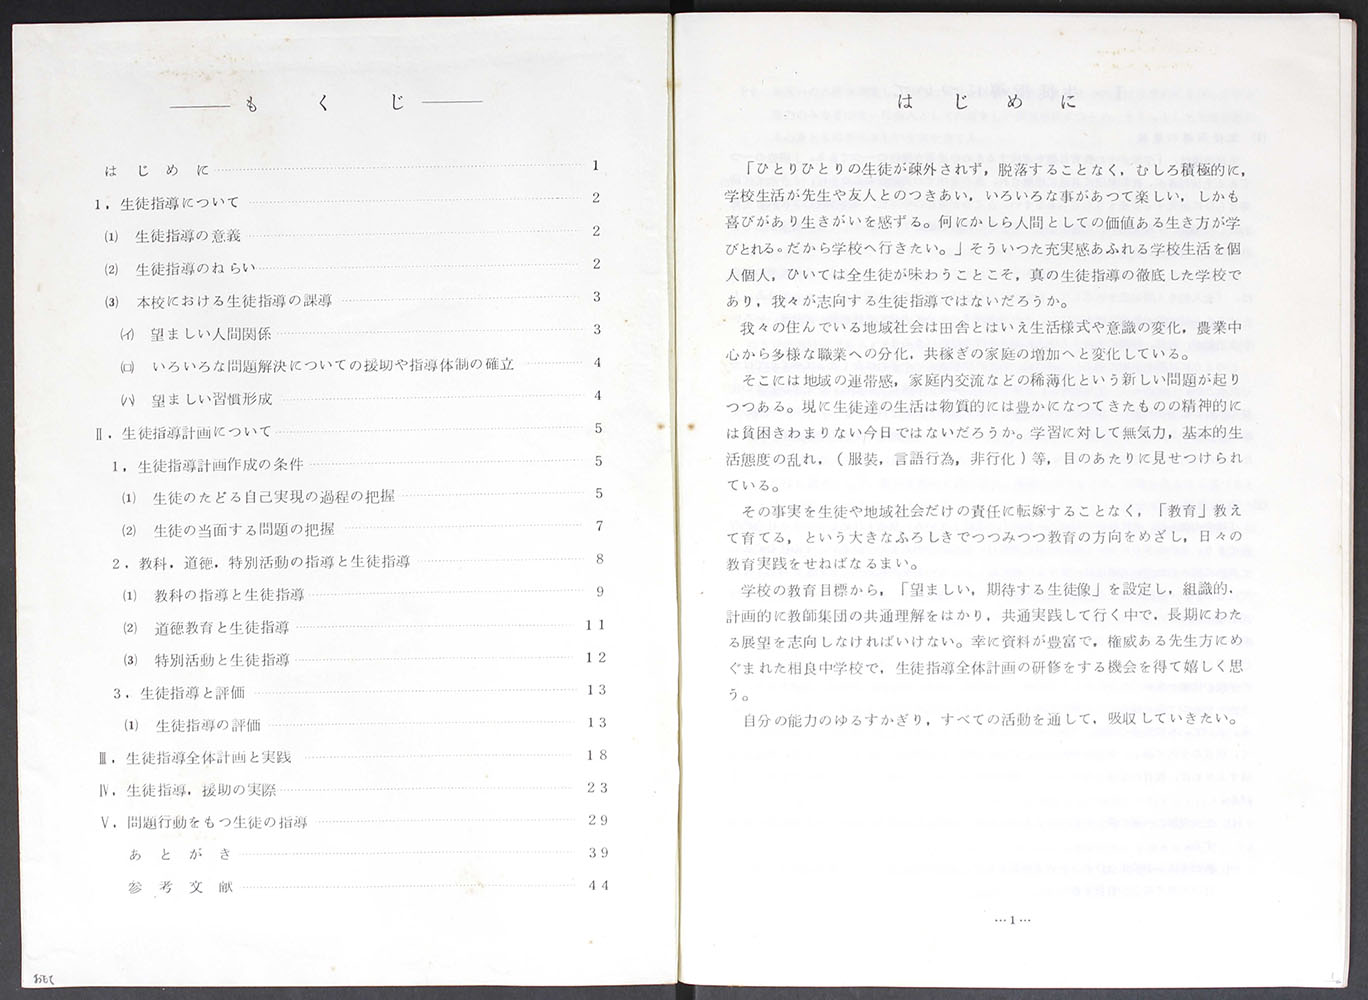 もくじ
はじめに 1
1，生徒指導について 2
⑴ 生徒指導の意義 2
⑵ 生徒指導のねらい 2
⑶ 本校における生徒指導の課導 3
㈑ 望ましい人間関係 3
㈺ いろいろな問題解決についての援助や指導体制の確立 4
(ハ) 望ましい習慣形成 4
Ⅱ，生徒指導計画について 5
1，生徒指導計画作成の条件 5
⑴ 生徒のたどる自己実現の過程の把握 5
⑵ 生徒の当面する問題の把握 7
2，教科，道徳，特別活動の指導と生徒指導 8
⑴ 教科の指導と生徒指導 9
⑵ 道徳教育と生徒指導 11
⑶ 特別活動と生徒指導 12
3，生徒指導と評価 13
⑴ 生徒指導の評価 13
Ⅲ，生徒指導全体計画と実践 18
Ⅳ，生徒指導，援助の実際 23
Ⅴ，問題行動をもつ生徒の指導 29
あとがき 39
参考文献 44
おもて
はじめに
「ひとりひとりの生徒が疎外されず，脱落することなく，むしろ積極的に，
学校生活が先生や友人とのつきあい，いろいろな事があつて楽しい，しかも
喜びがあり生きがいを感ずる。何にかしら人間としての価値ある生き方が学
びとれる。だから学校へ行きたい。」そういつた充実感あふれる学校生活を個
人個人，ひいては全生徒が味わうことこそ，真の生徒指導の徹底した学校で
あり，我々が志向する生徒指導ではないだろうか。
我々の住んでいる地域社会は田舎とはいえ生活様式や意識の変化，農業中
心から多様な職業への分化，共稼ぎの家庭の増加へと変化している。
そこには地域の連帯感，家庭内交流などの稀薄化という新しい問題が起り
つつある。現に生徒達の生活は物質的には豊かになつてきたものの精神的に
は貧困きわまりない今日ではないだろうか。学習に対して無気力，基本的生
活態度の乱れ，（服装，言語行為，非行化）等，目のあたりに見せつけられ
ている。
その事実を生徒や地域社会だけの責任に転嫁することなく，「教育」教え
て育てる，という大きなふろしきでつつみつつ教育の方向をめざし，日々の
教育実践をせねばなるまい。
学校の教育目標から，「望ましい，期待する生徒像」を設定し，組織的，
計画的に教師集団の共通理解をはかり，共通実践して行く中で，長期にわた
る展望を志向しなければいけない。幸に資料が豊富で，権威ある先生方にめ
ぐまれた相良中学校で，生徒指導全体計画の研修をする機会を得て嬉しく思
う。
自分の能力のゆるすかぎり，すべての活動を通して，吸収していきたい。
…1…